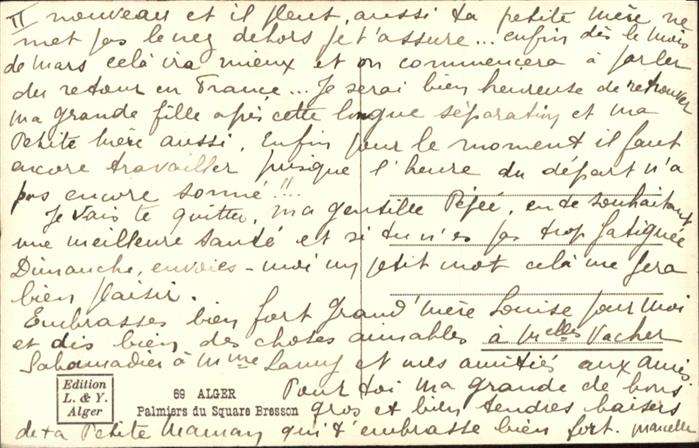 II nouveau et il pleut, aussi ta petite mère ne
met pas le nez dehors je t'assure... enfin dès le mois
de mars celà ira mieux et on commencera à parler
du retour en France... Je serai bien heureuse de retrouver
ma grande fille après cette longue séparation et ma
Petite Mère aussi. Enfin pour le moment il faut
encore travailler puisque l'heure du départ n'a
pas encore sonné!!...
Je vais te quitter, ma gentille Péjée, en te souhaitant
une meilleure santé et si tu n'es pas trop fatiguée
Dimanche, envoies-moi un petit mot celà me fera
bien plaisir.
Embrasses bien fort Grand'Mère Louise pour moi
et dis bien des choses aimables à Melles Vacher
à Mme Lamy et mes amitiés aux amis.
Pour toi ma grande de bons
gros et bien tendres baisers
de ta Petite Maman qui t'embrasse bien fort. Marcelle
Edition
L. & Y.
Alger
69 ALGER
Palmiers du Square Bresson